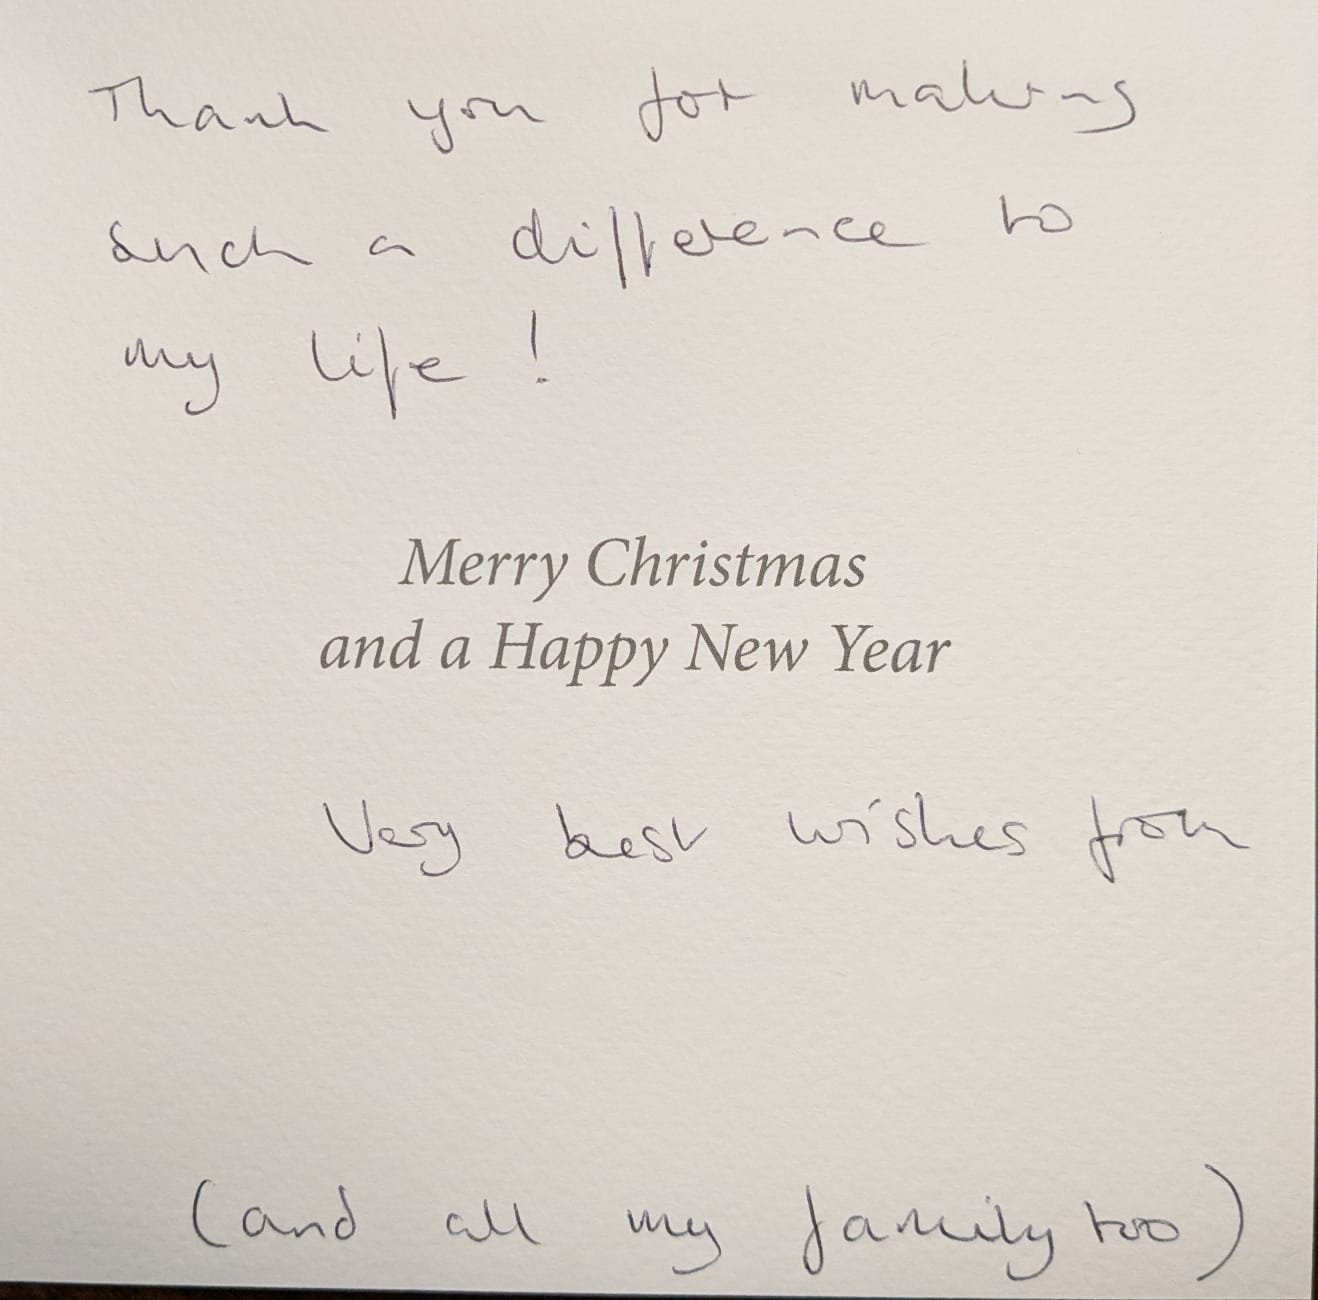 Thank you for making
such a difference to
my life!
Merry Christmas
and a Happy New Year
Very best wishes from
(and all my family too)